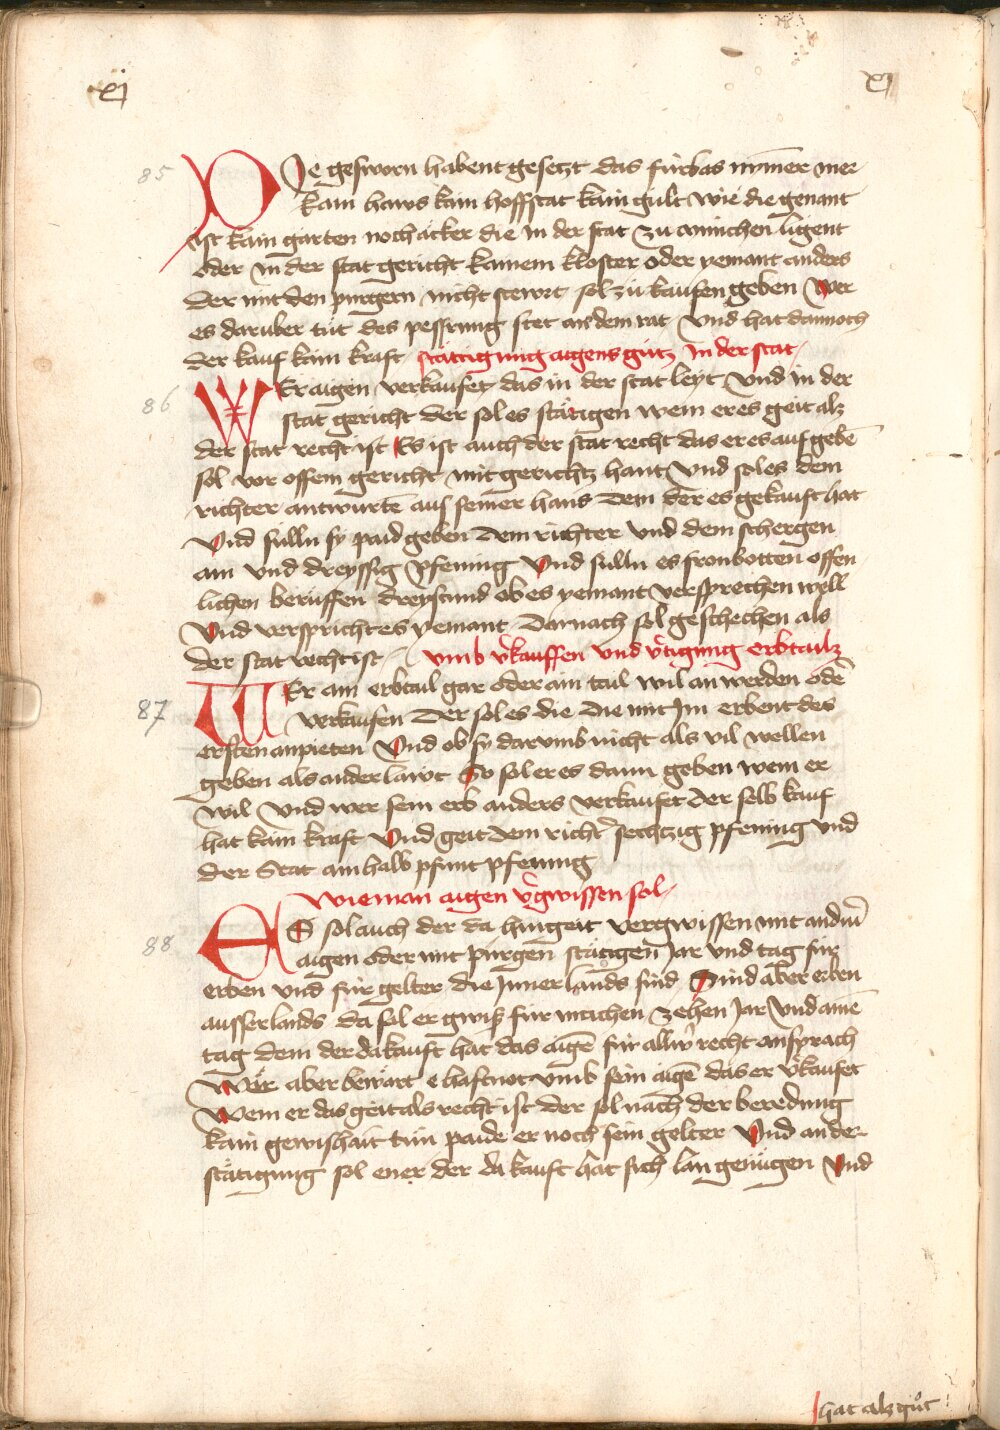 xj
xj
85
DIe gesworn habent gesetzt das fürbas nymer mer
kain haws kain hoffstat kain gült wie die genant
ist kain garten noch äcker die in der stat zu münichen ligent
oder in der stat gericht kainem kloster oder yemant anders
der mit den purgern nicht stewrt sol zu kaufen geben Wer
es daruber tüt des pessrung stet an dem rat Vnd hat dannoch
der kauf kain kraft stättigung aigens gütz in der stat
86
WEr aigen verkaufet das in der stat leyt Vnd in der
stat gericht der sol es stätigen wem er es geit alz
der stat recht ist Es ist auch der stat recht das er es auf gebē
sol vor offem gericht mit gerichtz hant Vnd sol es dem
richter antwurtē aus seiner hand Dem der es gekauft hat
Vnd sulln sy paid geben dem richter vnd dem schergen
ain vnd dreyssig pfening Vnd sulln es fronbotten offen
lichen berüffen dreystund ob es yemant versprechen well
Vnd verspricht es yemant Darnach sol geschechen als
der stat recht ist vmb v̓kauffen vnd v̓tigung erbtailz
87
WEr ain erbtail gar oder ain tail wil an werden odē
verkaufen Der sol es die Die mit Im erbent des
ersten anpieten Vnd ob sy darumb nicht als vil wellen
geben als ander läwt So sol er es dann geben wem er
wil Vnd wer sein erb anders verkaufet Der selb kauf
hat kain kraft Vnd geit dem richt̓ sechtzig pfening vnd
der Stat ain halb pfunt pfening
wie man aigen v̓gwissen sol
88
ES sol auch der da hingeit vergwissen mit andm̓
aigen oder mit purgen stätigen Jar vnd tag für
erben vnd für gelter die Inner lands sind Sind aber erben
ausserlands da sol er gwis für machen zehen Jar Vnd ainē
tag dem der da kauft hat das aigē für allw̓ recht ansprach
Wär aber bewärt ehaftnot vmb sein aigē das er v̓kaufet
Wem er das geit als recht ist der sol nach der beredung
kain gewishait tün paide er noch sein gelter Vnd an der
stätigung sol ener der da kauft hat sich lan genügen Vnd
hat alz gůt